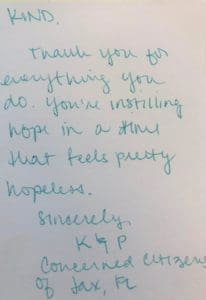 KIND,
Thank you for
everything you
do. You're instilling
hope in a time
that feels pretty
hopeless.
Sincerely,
K & P
Concerned citizens
of Jax, FL